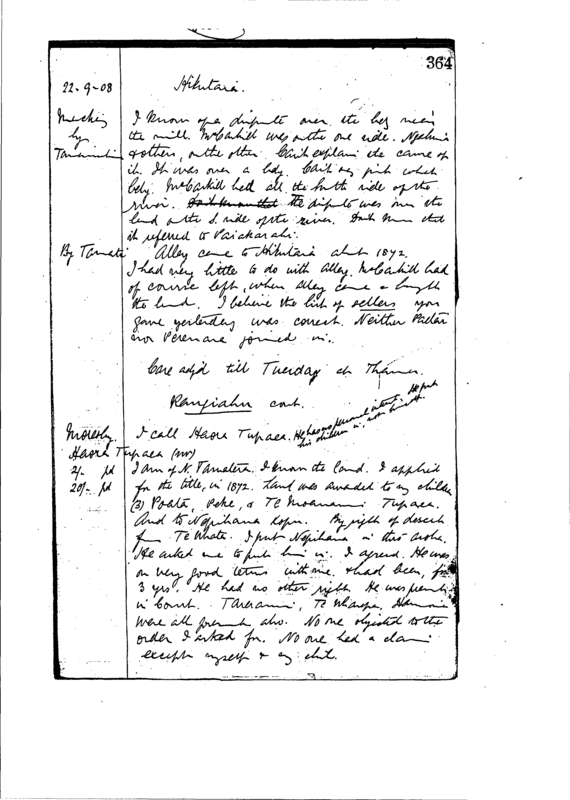 364
22-9-08 Hikutaia.
I know of a dispute over the bdy near
by the mill. McCaskill was on the one side.
& others, on the other. Can't explain the cause of
it. It was over a bdy. Can't say just which
bdy. McCaskill had all the south side of the
river. the dispute was over the
land on the S. side of the river.
it referred to Paiakarahi.
By Tamati Alley came to Hikutaia abt 1872.
I had very little to do with Alley. McCaskill had
of course left, when Alley came & bought
the land. I believe the list of sellers you
gave yesterday was correct. Neither
nor joined in.
Case adjd till Tuesday at Thames.
Rangiahu cont.
Moresby. I call Haora Tupaea. He has no personal interest. He put
his children in, not himself.
Haora Tupaea (sw)
2/- pd I am of N. Tamatera. I know the land. I applied
20/- pd for the title, in 1872. Land was awarded to my children
(3) Poata, Peke, & Te Moananui Tupaea.
And to Nepihana By right of descent
from Te Whata. I put Nepihana in thro' aroha.
He asked me to put him in. I agreed. He was
on very good terms with me & had been, for
3 yrs. He had no other right. He was present
in Court. Taraani, Te
were all present also. No one objected to the
order I asked for. No one had a claim
except myself & my chn.